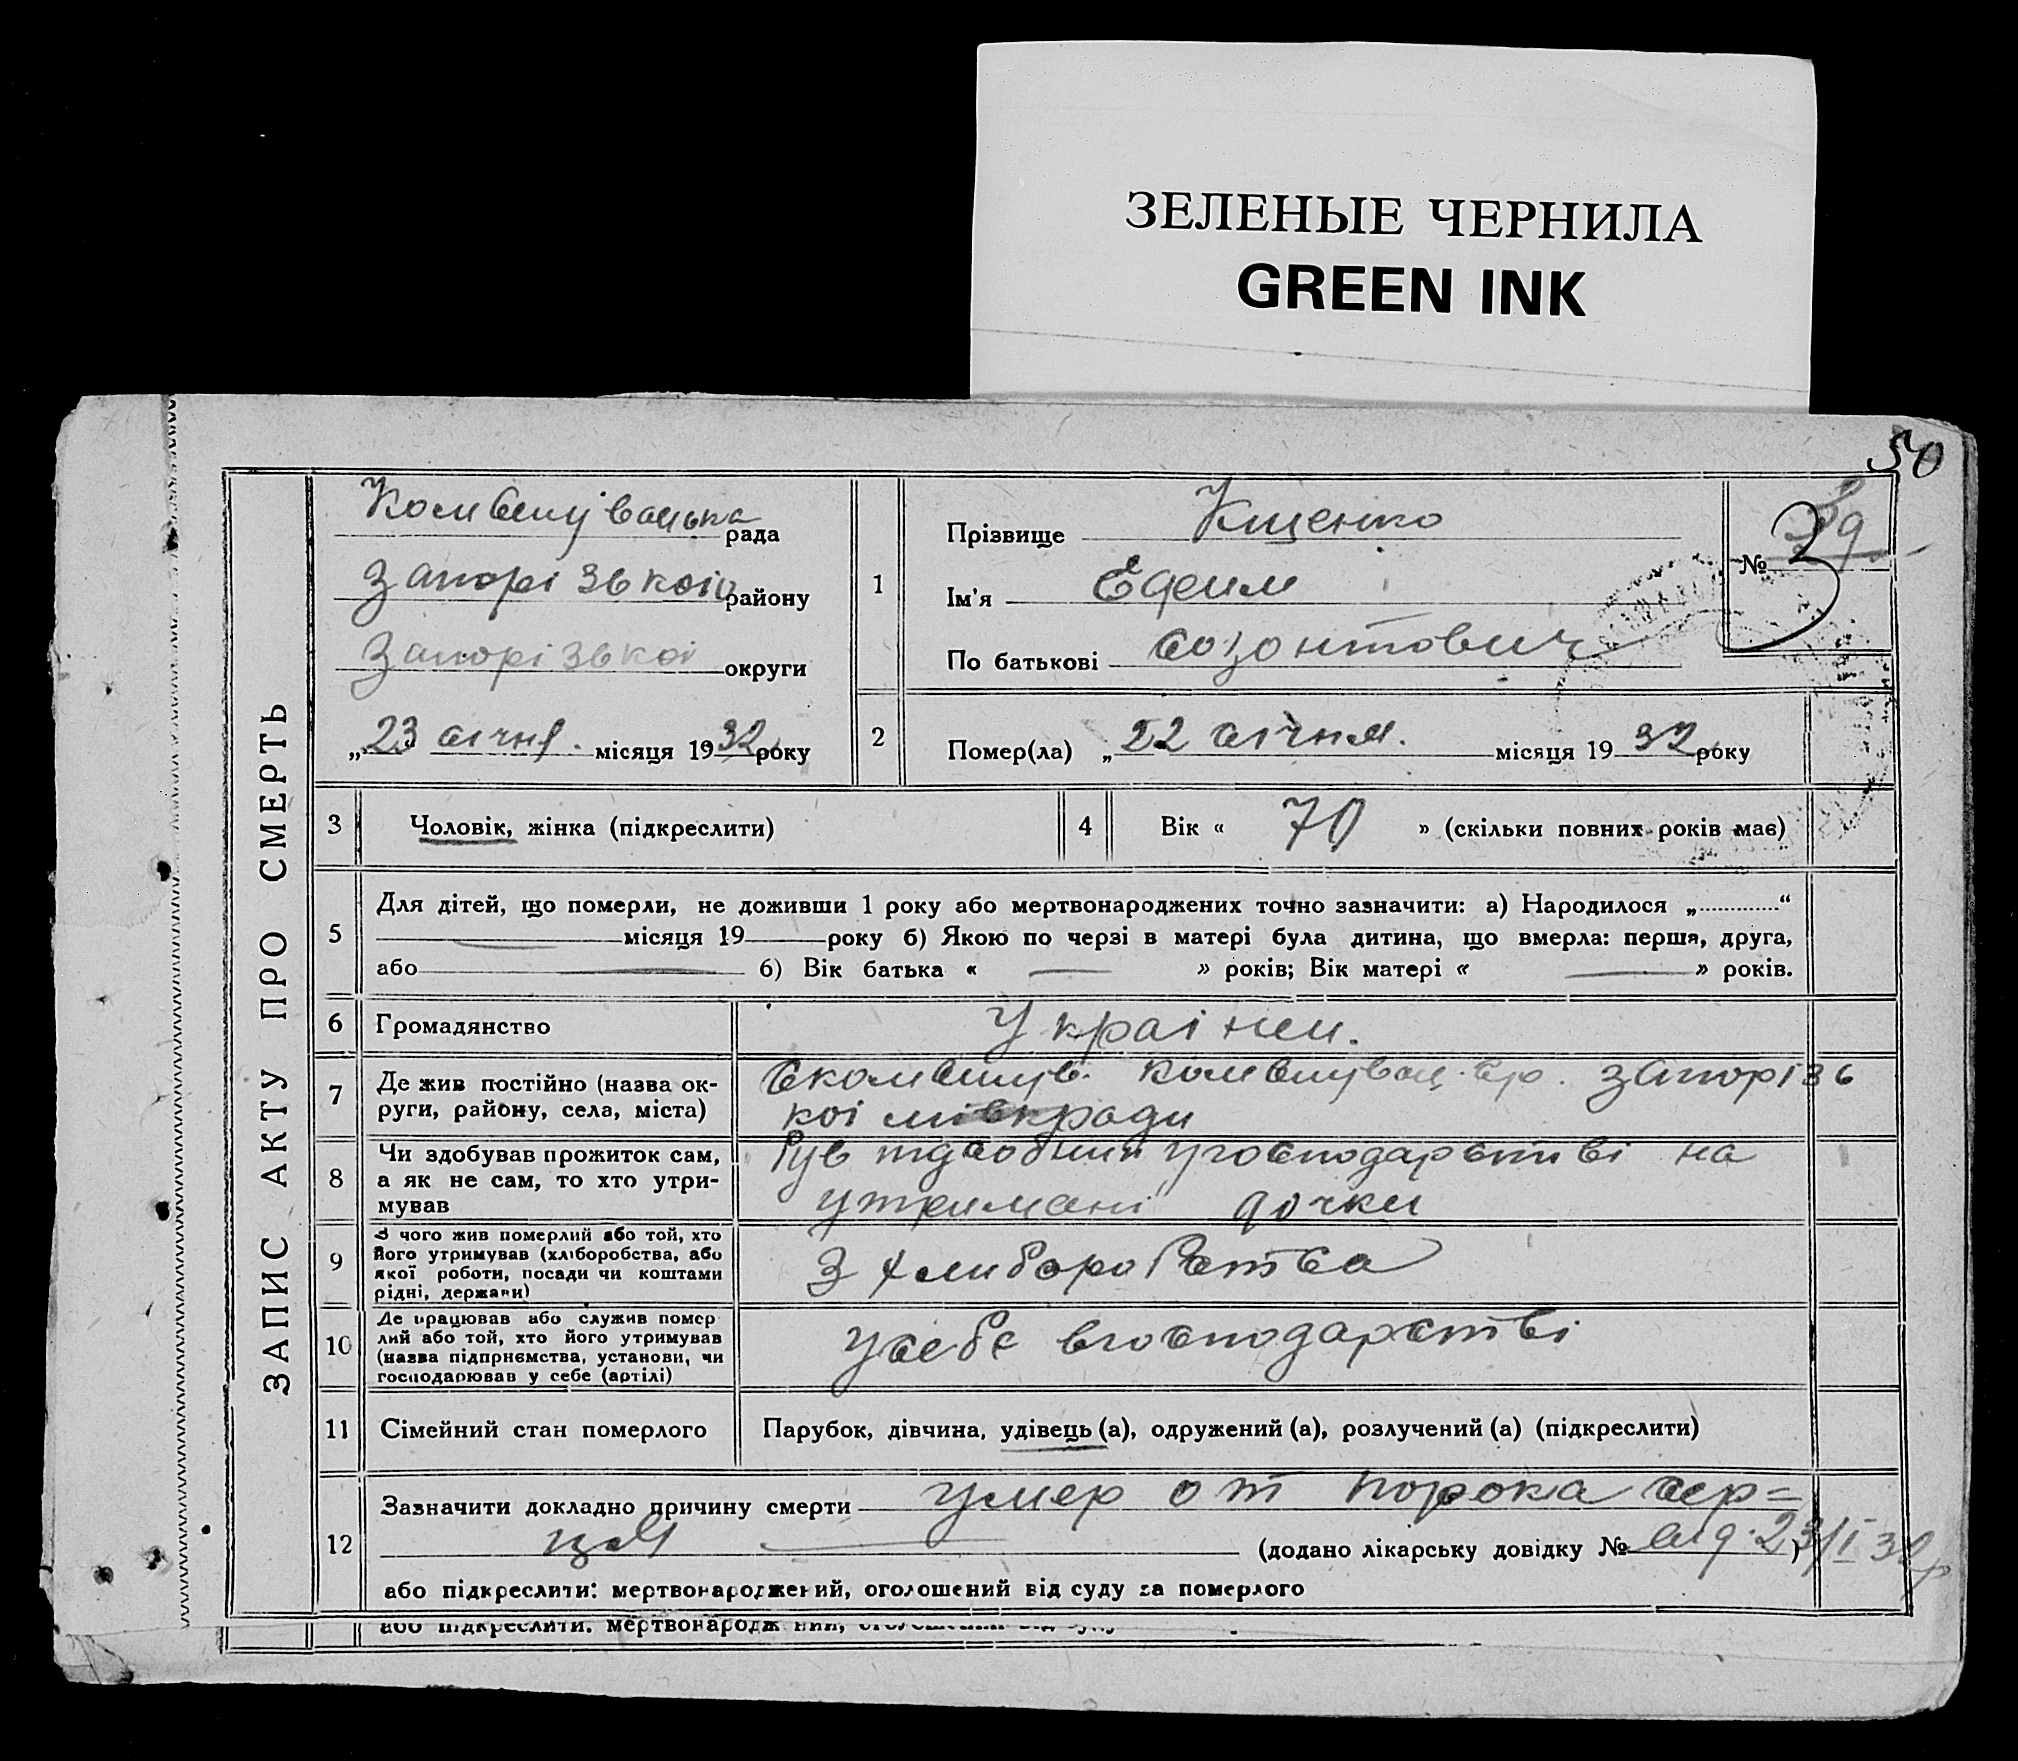 ЗЕЛЕНЫЕ ЧЕРНИЛА
GREEN INK
50
ЗАПИС АКТУ ПРО СМЕРТЬ
Комишуваська рада
Запорізької району
Запорізької округи
„23 січня. місяця 1932 року
1
Прізвище Кищенко
Ім'я
По батькові Созонтович
№ 39
3
2
Помер(ла) „22 січня. місяця 1932 року
3
Чоловік, жінка (підкреслити)
4
Вік « 70 » (скільки повних років має)
5
Для дітей, що померли, не доживши 1 року або мертвонароджених точно зазначити: а) Народилося „ “
місяця 19 року б) Якою по черзі в матері була дитина, що вмерла: перша, друга,
або б) Вік батька « » років; Вік матері « » років.
6
Громадянство
Украіни.
7
Де жив постійно (назва ок-
руги, району, села, міста)
запорізь
кої міськради
8
Чи здобував прожиток сам,
а як не сам, то хто утри-
мував
Був підсобний у господарстві на
утримані дочки
9
З чого жив померлий або той, хто
його утримував (хліборобства, або
якої роботи, посади чи коштами
рідні, держави)
З хлиборобства
10
Де працював або служив помер
лий або той, хто його утримував
(назва підприємства, установи, чи
господарював у себе (артілі)
у себе в господарстві
11
Сімейний стан померлого
Парубок, дівчина, удівець (а), одружений (а), розлучений (а) (підкреслити)
12
Зазначити докладно причину смерти умер от порока сер=
ця
(додано лікарську довідку № від 23/I 32р)
або підкреслити: мертвонароджений, оголошений від суду за померлого
або підкреслити: мертвонароджений, оголошений від суду